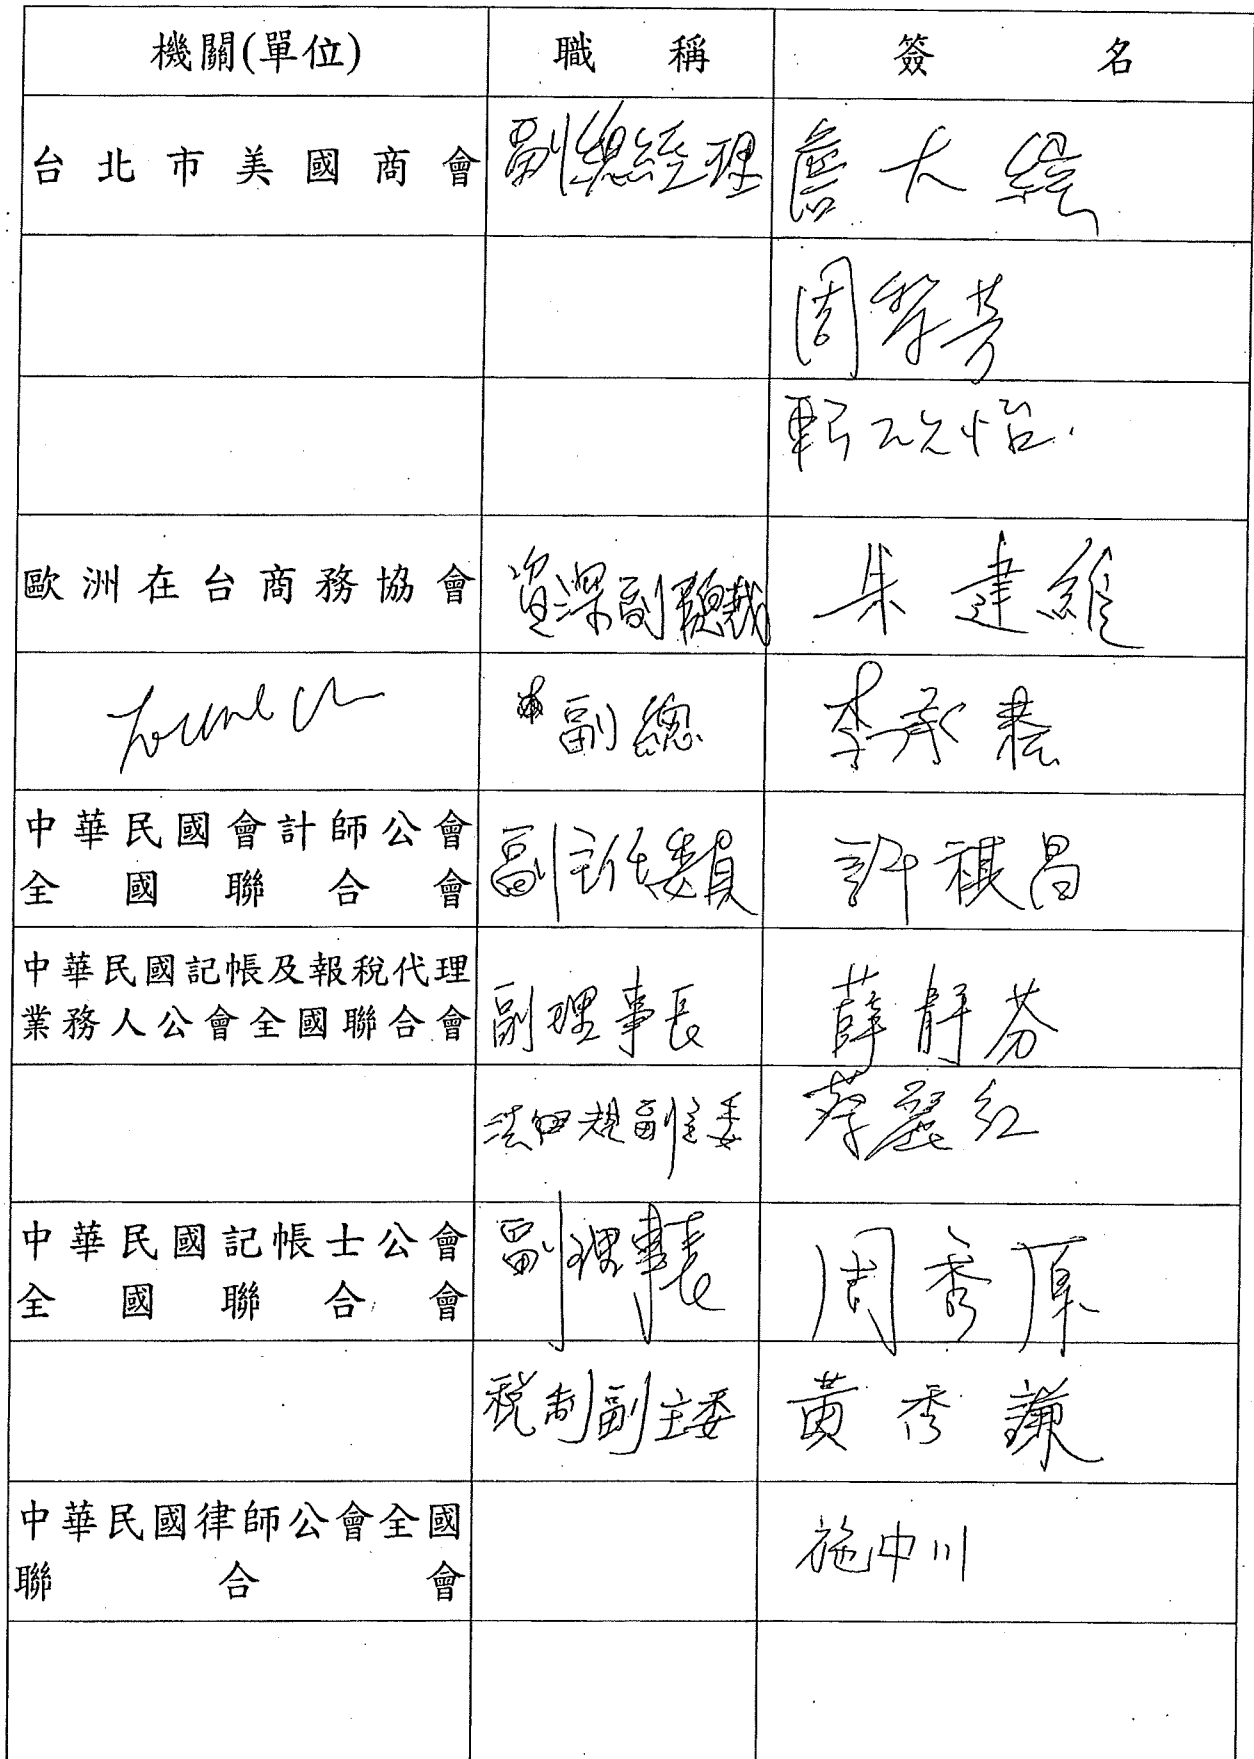 機關(單位) 職稱 簽名
台北市美國商會 副總經理 詹大緯
周黎芳
歐洲在台商務協會 資深副總裁 朱建維
副總 李承
中華民國會計師公會
全國聯合會 副主任委員 許祺昌
中華民國記帳及報稅代理
業務人公會全國聯合會 副理事長 薛靜芬
法規副主委 蔡麗紅
中華民國記帳士公會
全國聯合會 副理事長 周秀原
稅制副主委 黃秀謙
中華民國律師公會全國
聯合會 施中川